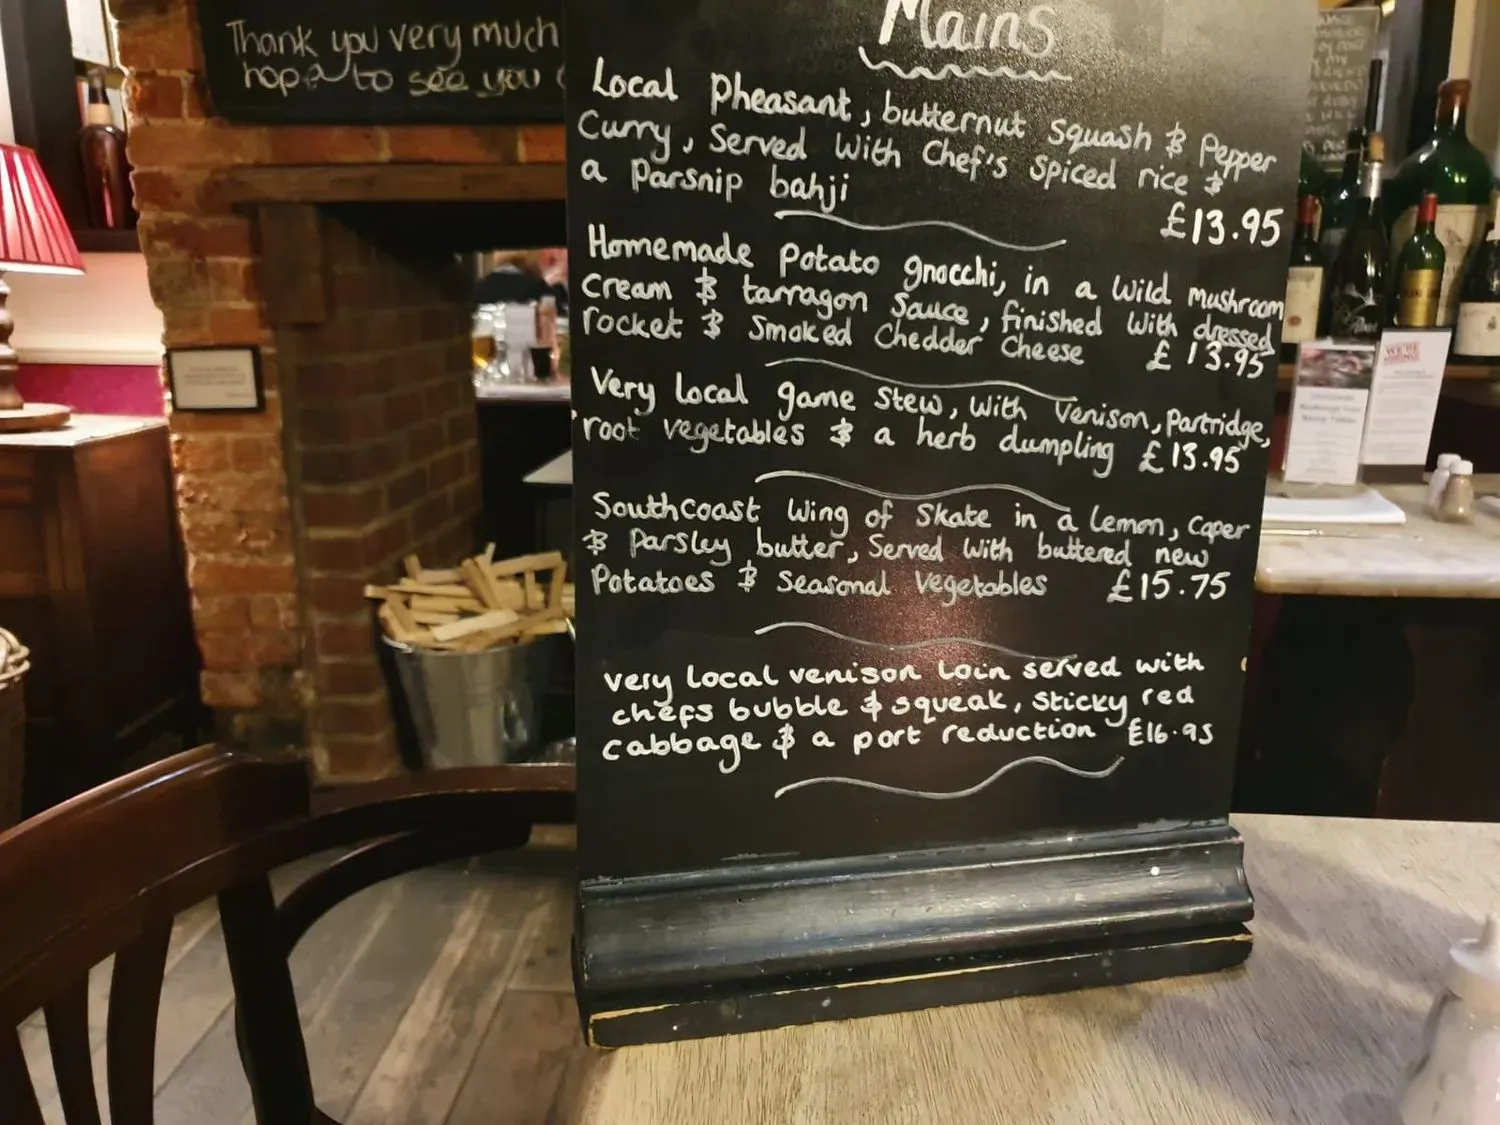 Thank you very much
hope to see you
Mains
Local Pheasant, butternut squash & Pepper
Curry, Served with Chef's spiced rice &
a Parsnip bahji
£13.95
Homemade Potato gnocchi, in a wild mushroom
cream & tarragon Sauce, finished with dressed
rocket & smoked Chedder Cheese £13.95
Very Local game Stew, with Venison, Partridge,
root vegetables & a herb dumpling £13.95
Southcoast Wing of Skate in a lemon, caper
& Parsley butter, Served with buttered new
Potatoes & Seasonal Vegetables £15.75
very Local venison Loin served with
chefs bubble & squeak, sticky red
cabbage & a port reduction £16.95